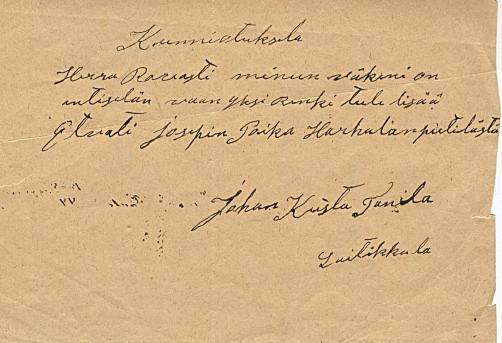 Kunniotuksela
Herra Rovasti minun väkeni on
entiselän vaan yksi renki tuli lisää
Josepin Poika Harhalanpietilästä
Johan Kusta Tanila
Laitikkala